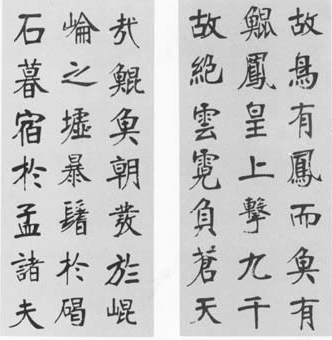 故鳥有鳳而魚有
鯤鳳皇上擊九千
故絕雲霓負蒼天
哉鯤魚朝發於崐
崘之墟暴鬐於碣
石暮宿於孟諸夫